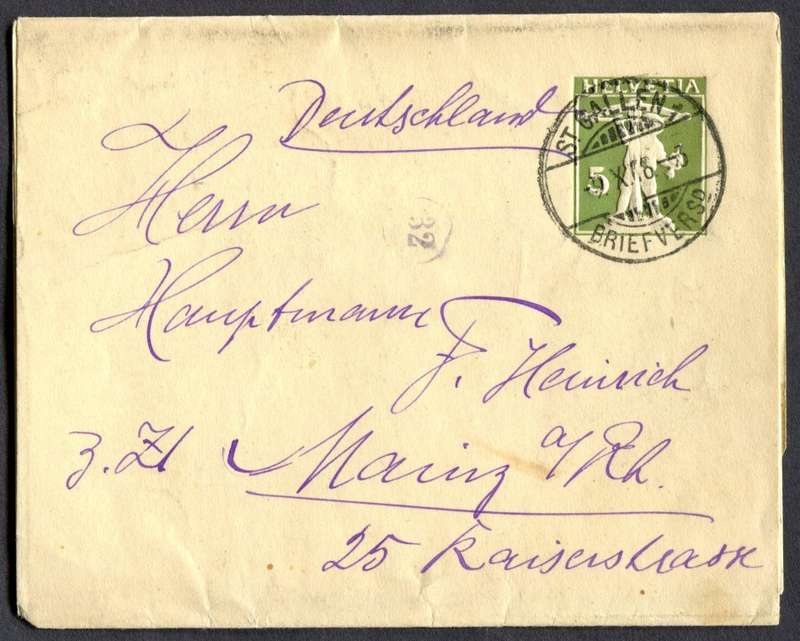 Deutschland
HELVETIA
5 5
ST. GALLEN
BRIEFVERSD
Herrn
32
Hauptmann
F. Heinrich
z. Zt Mainz a/Rh.
25 Kaiserstrasse